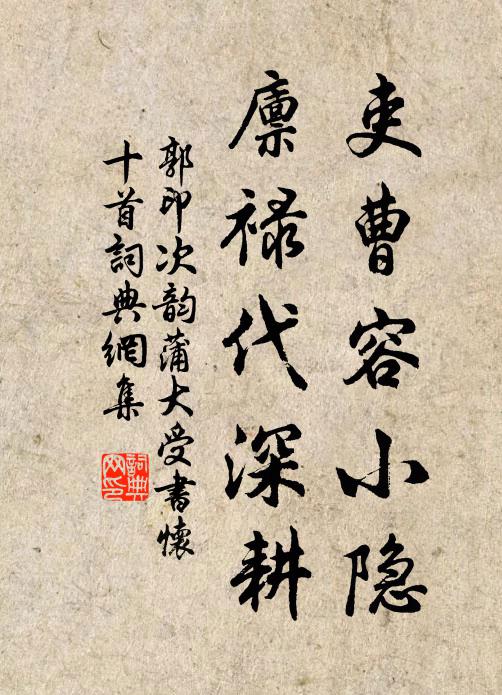 吏曹容小隐
廪禄代深耕
郭印次韵蒲大受書懷
十首詞典網集
詞典
网印